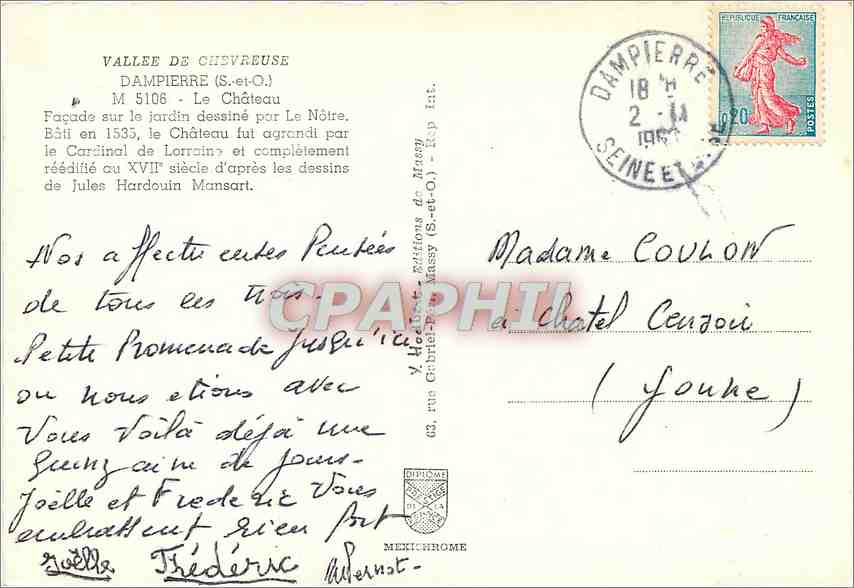 VALLEE DE CHEVREUSE
DAMPIERRE (S.-et-O.)
M 5106 - Le Château
Façade sur le jardin dessiné par Le Nôtre.
Bâti en 1535, le Château fut agrandi par
le Cardinal de Lorraine et complètement
réédifié au XVIIe siècle d'après les dessins
de Jules Hardouin Mansart.
Nos affectueuses Pensées
de tous les trois.
Petite Promenade jusqu'ici
ou nous etions avec
Vous Voilà déjà une
quinzaine de jours.
Joëlle et Frederic Vous
embrassent bien fort
Joëlle Frédéric
MPernot
Editions de Massy
63, rue Gabriel-Péri, Massy (S.-et-O.) - Rep Int.
DIPLOME
PRESTIGE
DE LA
MEXICHROME
REPUBLIQUE FRANÇAISE
0,20
POSTES
DAMPIERRE
18 H
2 - 11
SEINE ET
Madame COULON
à Chatel Censoir
(Yonne)
CPAPHIL